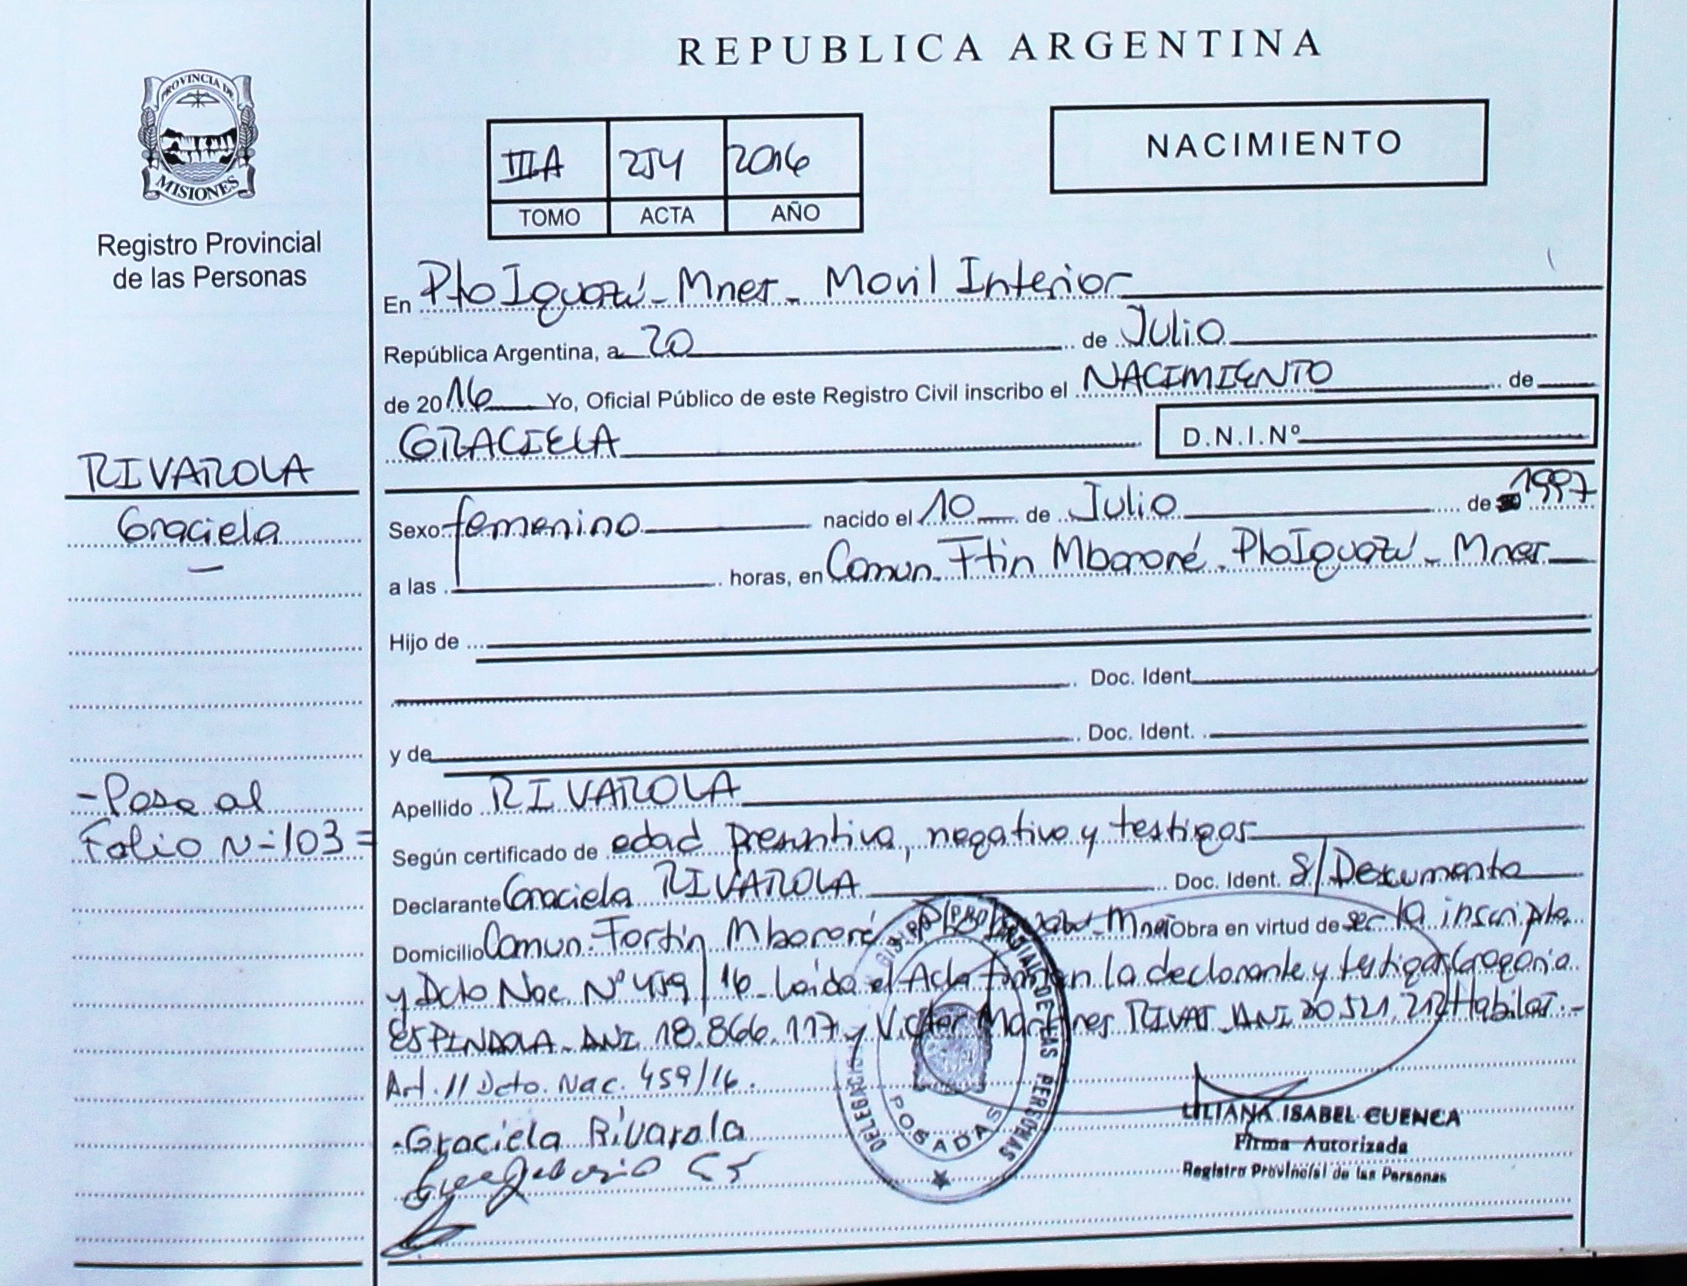 REPUBLICA ARGENTINA
PROVINCIA DE
MISIONES
Registro Provincial
de las Personas
IIIA 254 2016
TOMO ACTA AÑO
NACIMIENTO
En Pto Iguazú - Mnes - Movil Interior
República Argentina, a 20 de Julio
de 2016 Yo, Oficial Público de este Registro Civil inscribo el NACIMIENTO de
GRACIELA D.N.I.Nº
RIVAROLA
Graciela
Sexo femenino nacido el 10 de Julio de 1997
a las horas, en Comun. Ftin Mbororé - Pto Iguazú - Mnes
Hijo de
Doc. Ident.
y de Doc. Ident.
Apellido RIVAROLA
- Pase al
Folio Nº 103 =
Según certificado de edad presuntiva, negativo y testigos
Declarante Graciela RIVAROLA Doc. Ident. S/Documento
Domicilio Comun. Fortín Mbororé Pto Iguazú - Mnes Obra en virtud de ser la inscripta
y Dcto Nac. Nº 459/16 - Leída el Acta firman la declarante y testigos Gregoria
ESPINDOLA - DNI 18.866.117 y Victor Martines RIVAS - DNI 30.521.212 Habiles.-
Art. 11 Dcto. Nac. 459/16.
- Graciela Rivarola
DELEGACION
REGISTRO PROVINCIAL DE LAS PERSONAS
POSADAS
LILIANA ISABEL CUENCA
Firma Autorizada
Registro Provincial de las Personas